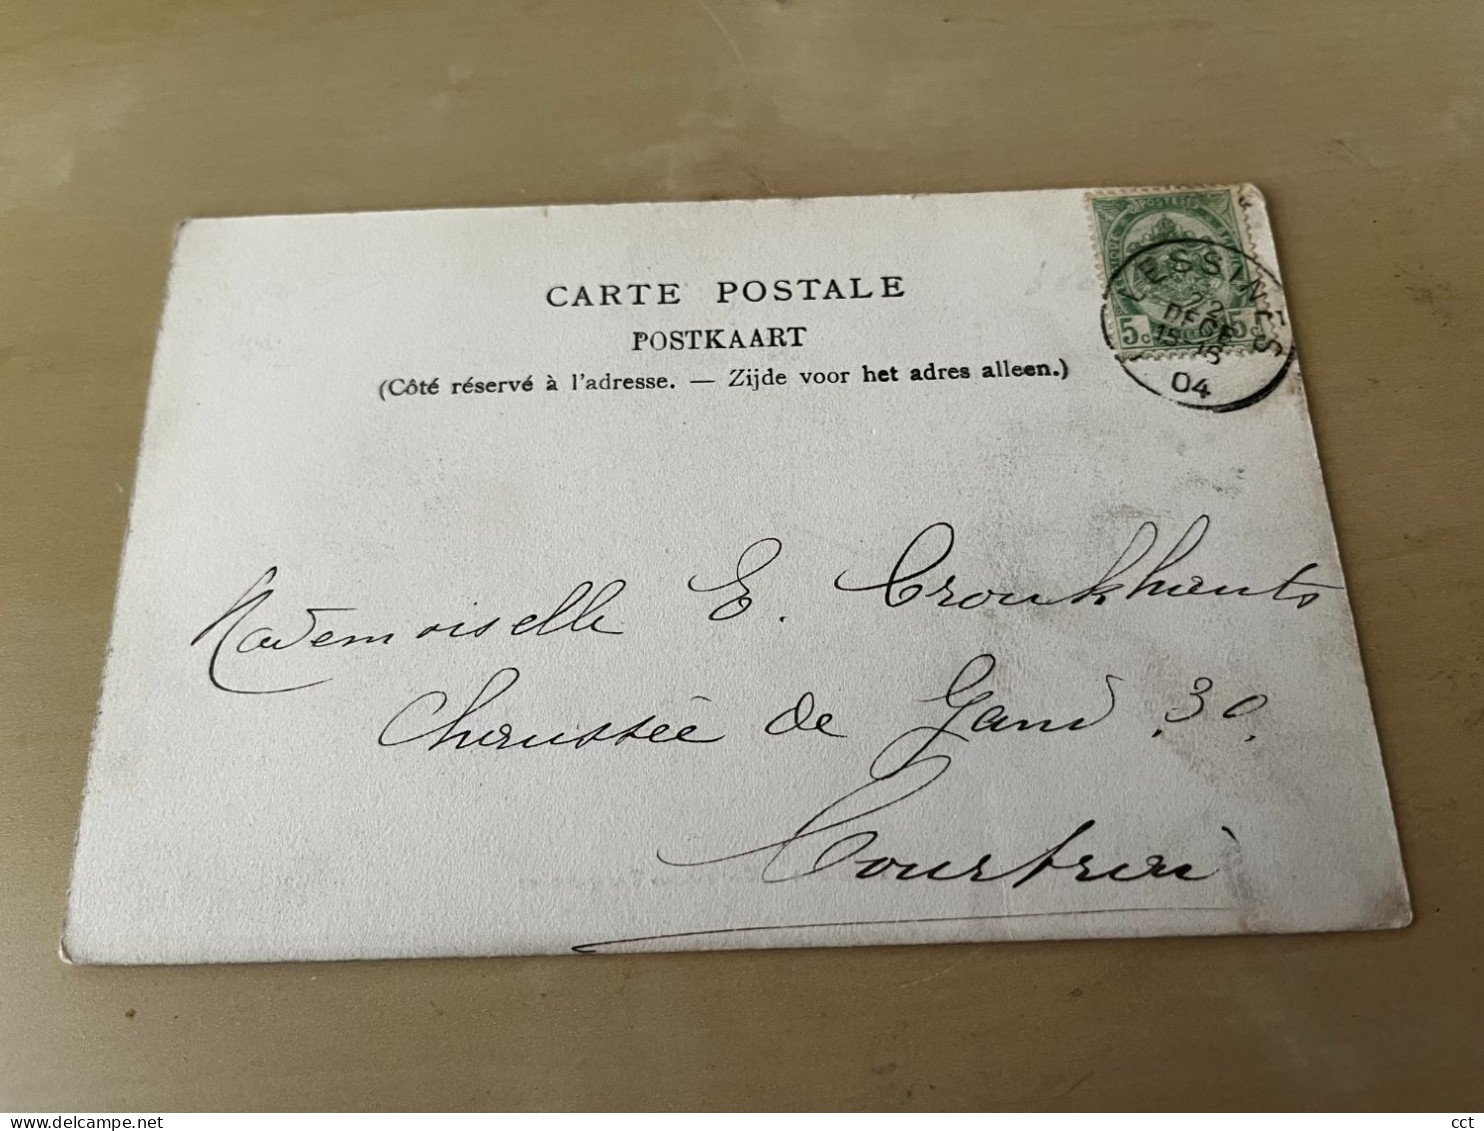 CARTE POSTALE
POSTKAART
(Côté réservé à l'adresse. — Zijde voor het adres alleen.)
POSTES
5c 5c
LESSINES
22
DECE
15-18
04
Mademoiselle E. Cronkhants
Chaussée de Gand. 30.
Courtrai
cct